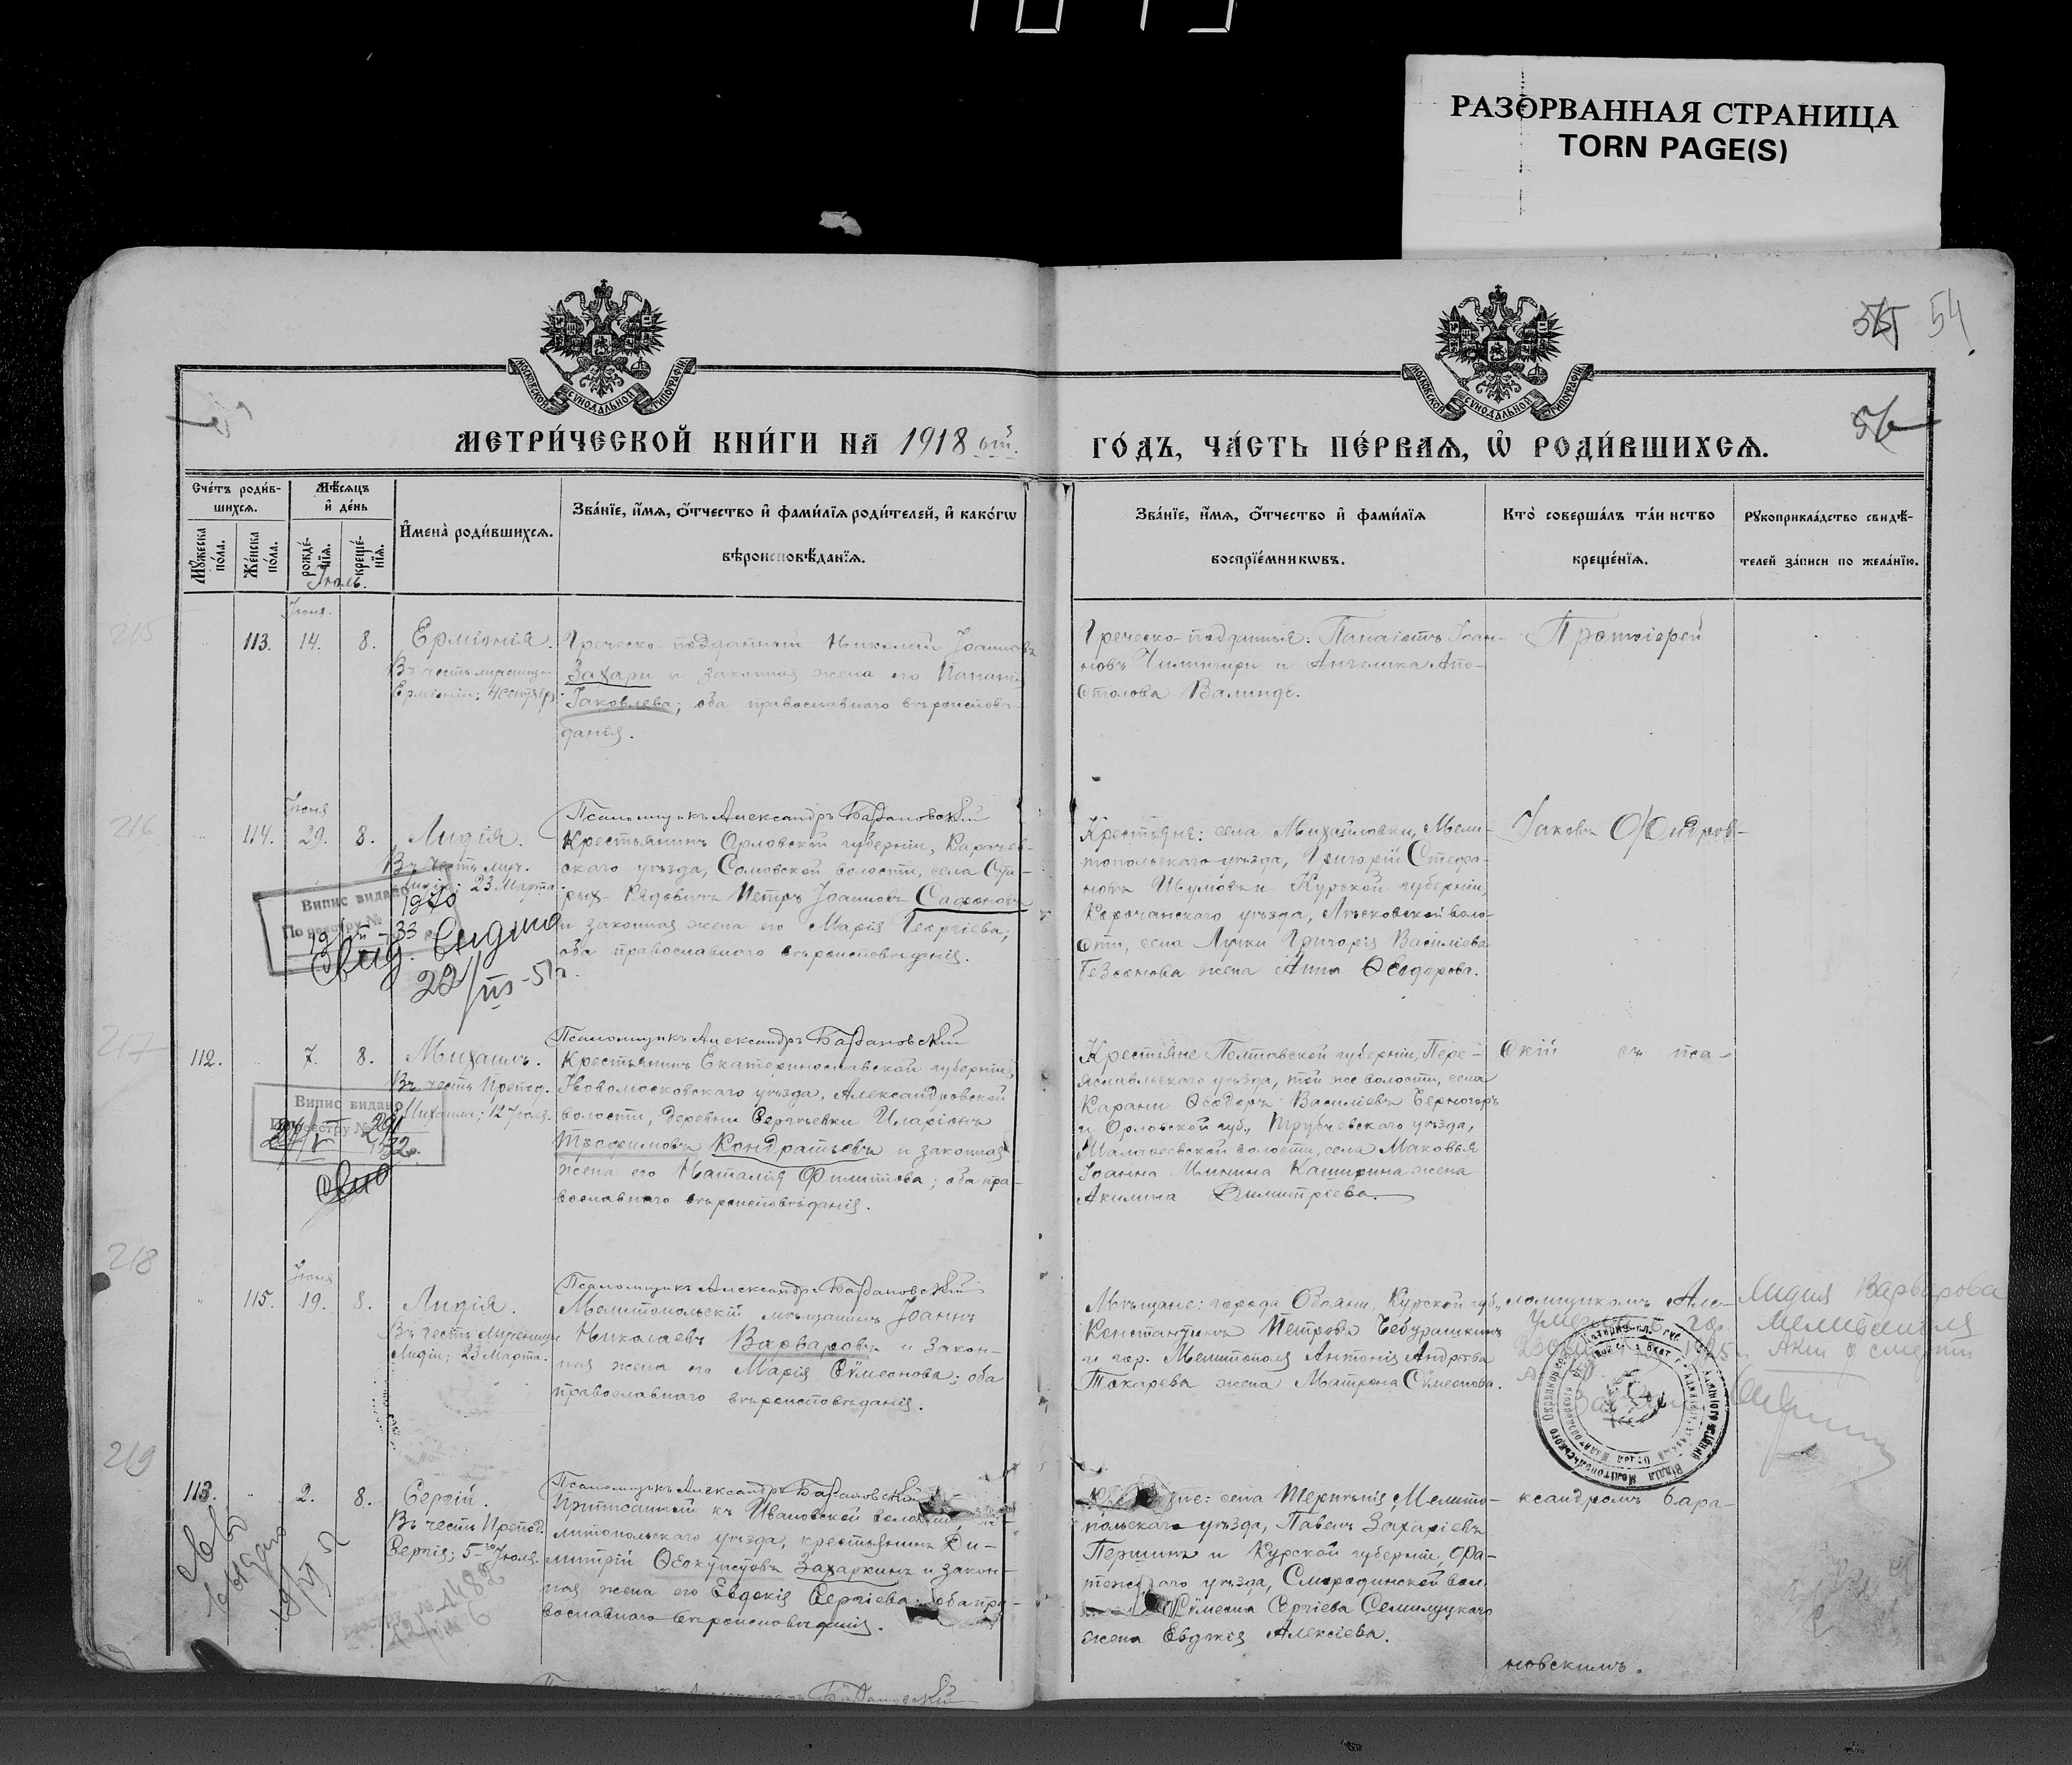 РАЗОРВАННАЯ СТРАНИЦА
TORN PAGE(S)
54
МОСКОВСКОЙ СѴНОДАЛЬНОЙ ТИПОГРАФІИ
МОСКОВСКОЙ СѴНОДАЛЬНОЙ ТИПОГРАФІИ
МЕТРИ́ЧЕСКОЙ КНИ́ГИ НА 1918 ый.
ГО́ДЪ, ЧА́СТЬ ПЕ́РВАѦ, Ѽ РОДИ́ВШИХСѦ.
Сче́тъ роди́в-
шихсѧ.
Мꙋ́жеска по́ла.
Же́нска по́ла.
Мѣ́сѧцъ
и҆ де́нь
рожде́-
нїѧ.
креще́-
нїѧ.
Іюль.
И҆мена̀ роди́вшихсѧ.
Зва́нїе, и҆́мѧ, ѻ҆́тчество и҆ фами́лїѧ роди́телей, и҆ како́гѡ
вѣроисповѣ́данїѧ.
Зва́нїе, и҆́мѧ, ѻ҆́тчество и҆ фами́лїѧ
воспрїе́мникѡвъ.
Кто̀ соверша́лъ та́инство
креще́нїѧ.
Рꙋкоприкла́дство свидѣ́-
телей за́писи по жела́нїю.
215
Іюня.
113. 14. 8. Ермiонiя.
Въ честь мученицы
Ермiонiи; 4 Сентяб
Греческо-подданный Николай Іоанновъ
Захари и законная жена его
Іаковлева; оба православнаго вѣроисповѣ-
данiя.
Греческо-подданныя: Панаiотъ Іоан-
новъ Чилингири и Ангелика Апо-
столова
Протоiерей
216
Іюня
114. 29. 8. Лидiя.
Въ честь муч.
Лидiи; 23 Марта.
Псаломщикъ Александръ Барановскiй
Крестьянинъ Орловской губернiи, Карачев-
скаго уѣзда, Сомовской волости, села Ста-
рыхъ-Рядовичъ Петръ Іоанновъ Сафоновъ
и законная жена его Марiя Георгiева;
оба православнаго вѣроисповѣданiя.
Крестьяне: села Михайловки, Мели-
топольскаго уѣзда, Григорiй Стефа-
новъ Шумовъ и Курской губернiи,
Корочанскаго уѣзда, волo-
сти, села Лучки Григорiя Василiева
Безсонова жена Анна Ѳеодорова.
Іаковъ
Випис видано
По реєстру №
22/III-51г.
217
112. 7. 8. Михаилъ.
Въ честь Препод.
Михаила; 12 Іюля.
Псаломщикъ Александръ Барановскiй
Крестьянинъ Екатеринославской губернiи,
Новомосковскаго уѣзда, Александровской
волости, деревни Сергѣевки Иларiонъ
Трофимовъ Кондратьевъ и законная
жена его Наталiя Филиппова; оба пра-
вославнаго вѣроисповѣданiя.
Крестьяне Полтавской губернiи, Пере-
яславльскаго уѣзда, той же волости, села
Карани Ѳеодоръ Василiевъ Черногоръ
и Орловской губ., Трубчевскаго уѣзда,
волости, села Маковья
Іоанна Минина Каширина жена
Акилина Димитрiева.
скiй съ пса-
Випис видано
По реєстру №
218
Іюня
115. 19. 8. Лидiя.
Въ честь Мученицы
Лидiи; 23 Марта.
Псаломщикъ Александръ Барановскiй
Мелитопольскiй мѣщанинъ Іоаннъ
Николаевъ Варваровъ и закон-
ная жена его Марiя Сѵмеонова; оба
православнаго вѣроисповѣданiя.
Мѣщане: города Обояни, Курской губ.,
Константинъ Петровъ Чебурашкинъ
и гор. Мелитополя Антонiя Андреева
Токарева жена Матрона Сѵмеонова.
ломщикомъ Але-
Лидия Варварова
219
113. 2. 8. Сергiй.
Въ честь Препод.
Сергiя; 5-го Іюля.
Псаломщикъ Александръ Барановскiй
Приписанный къ Ивановской волости
литопольскаго уѣзда, крестьянинъ Ди-
митрiй Ѳеоктистовъ Захаркинъ и закон-
ная жена его Евдокiя Сергiева; оба пра-
вославнаго вѣроисповѣданiя.
села Терпѣнiя, Мелито-
польскаго уѣзда, Павелъ Захарiевъ
Першинъ и Курской губернiи,
уѣзда, Смородинской вол.
Сѵмеона Сергiева Семилуцкаго
жена Евдокiя Алексiева.
ксандромъ Бара-
новскимъ.
Псаломщикъ Александръ Барановскiй